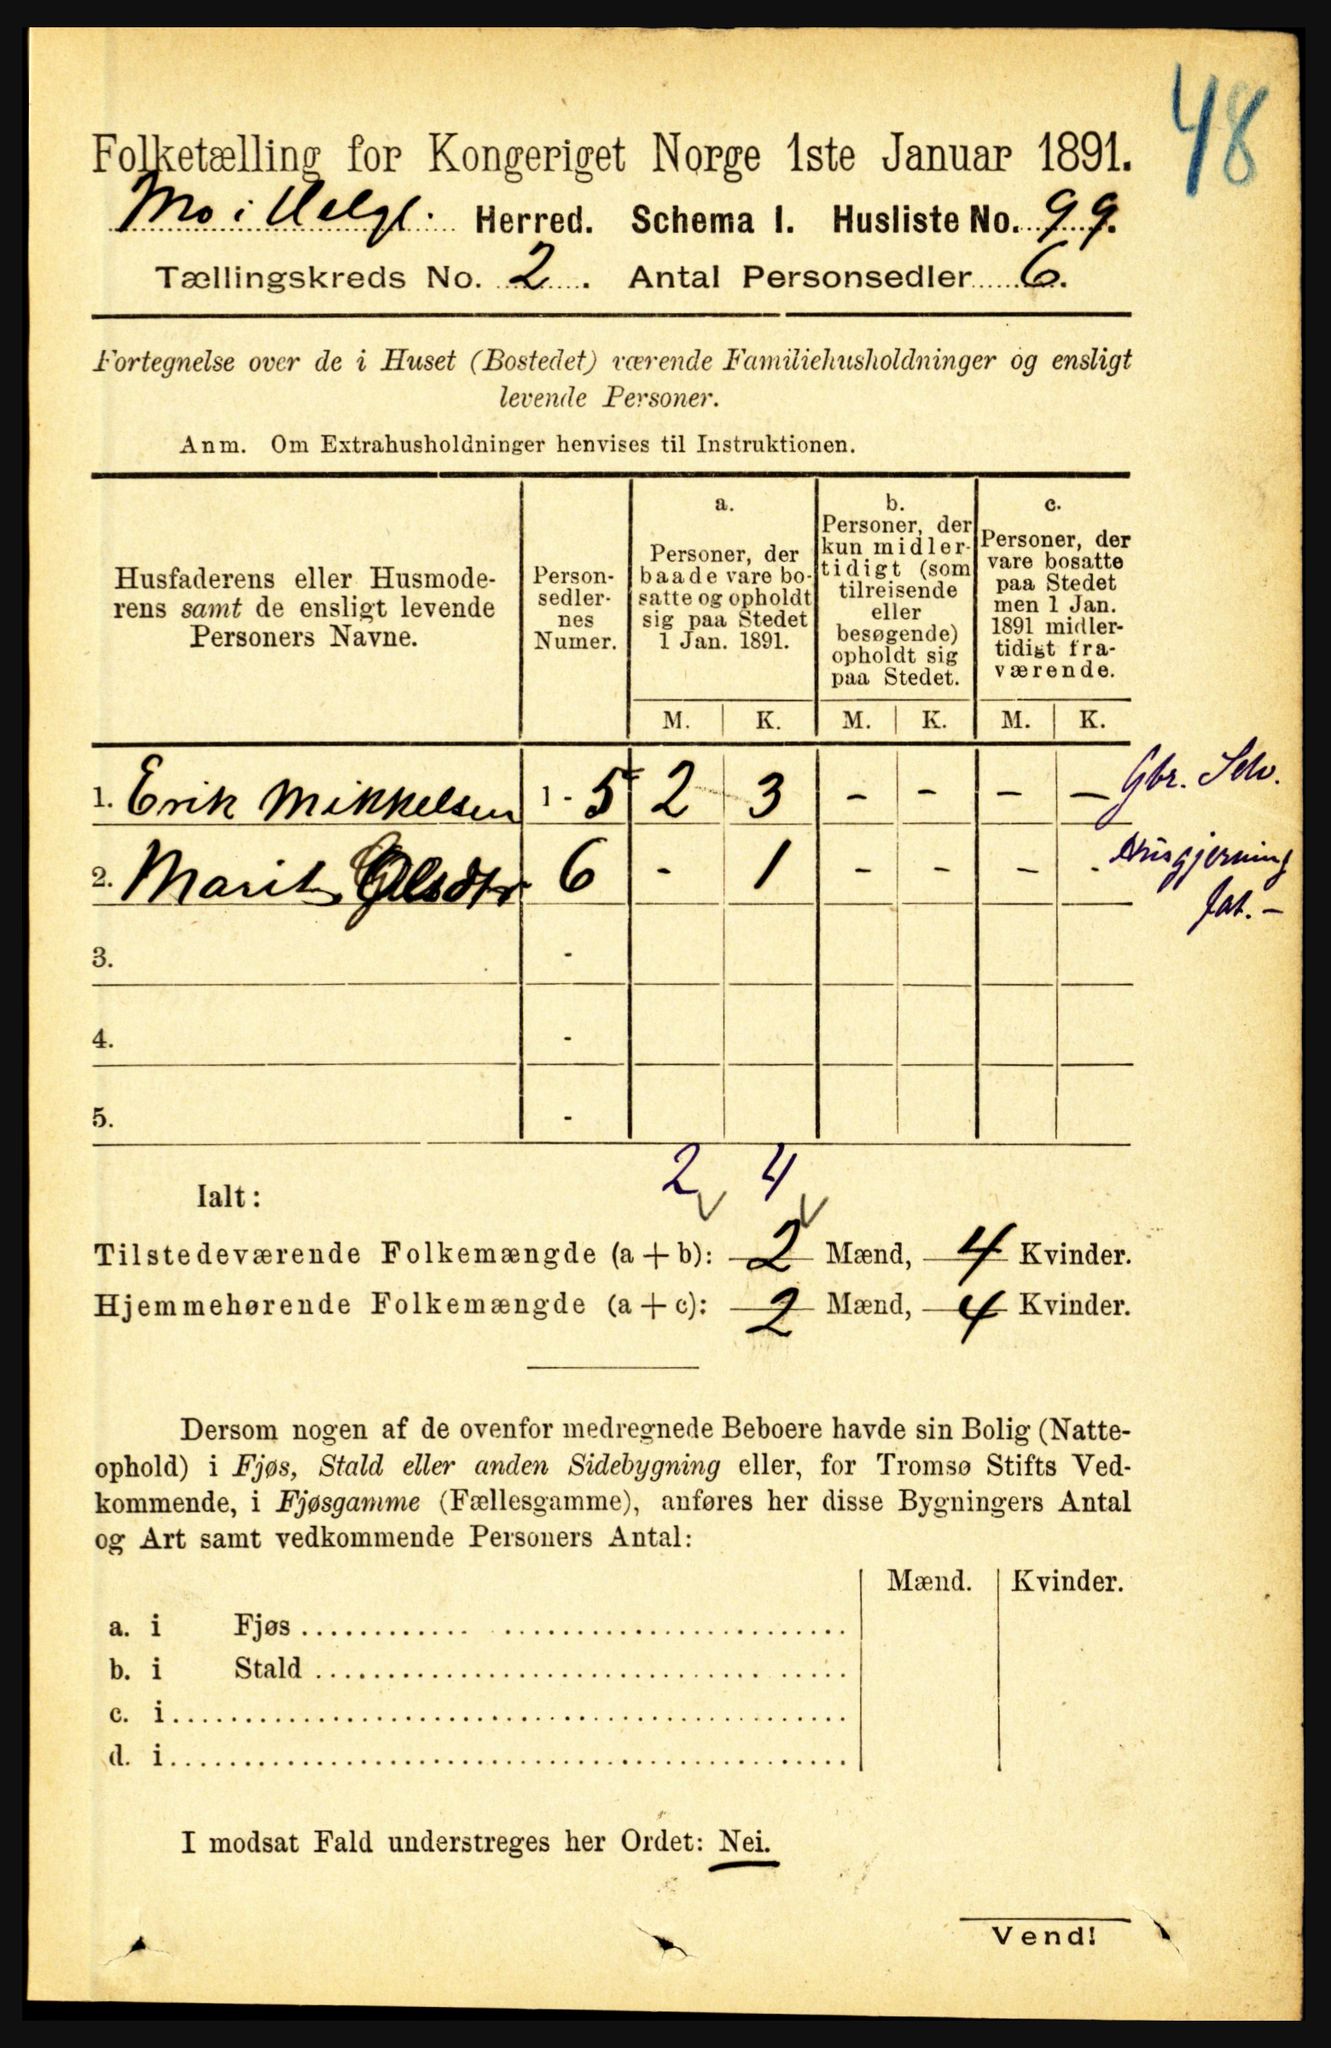 48
Folketælling for Kongeriget Norge 1ste Januar 1891.
Mo i Helgl. Herred. Schema I. Husliste No. 99.
Tællingskreds No. 2. Antal Personsedler 6.
Fortegnelse over de i Huset (Bostedet) værende Familiehusholdninger og ensligt
levende Personer.
Anm. Om Extrahusholdninger henvises til Instruktionen.
Husfaderens eller Husmode-
rens samt de ensligt levende
Personers Navne.
Person-
sedler-
nes
Numer.
a.
Personer, der
baade vare bo-
satte og opholdt
sig paa Stedet
1 Jan. 1891.
b.
Personer, der
kun midler-
tidigt (som
tilreisende
eller
besøgende)
opholdt sig
paa Stedet.
c.
Personer, der
vare bosatte
paa Stedet
men 1 Jan.
1891 midler-
tidigt fra-
værende.
M. K. M. K. M. K.
1. Erik Mikkelsen 1 - 5 2 3 - - - - Gbr. Selv.
2. Marit Olsdtr 6 - 1 - - - - Husgjerning
fat. -
3. -
4. -
5. -
2 4
Ialt:
Tilstedeværende Folkemængde (a + b): 2 Mænd, 4 Kvinder.
Hjemmehørende Folkemængde (a + c): 2 Mænd, 4 Kvinder.
Dersom nogen af de ovenfor medregnede Beboere havde sin Bolig (Natte-
ophold) i Fjøs, Stald eller anden Sidebygning eller, for Tromsø Stifts Ved-
kommende, i Fjøsgamme (Fællesgamme), anføres her disse Bygningers Antal
og Art samt vedkommende Personers Antal:
Mænd. Kvinder.
a. i Fjøs
b. i Stald
c. i
d. i
I modsat Fald understreges her Ordet: Nei.
Vend!